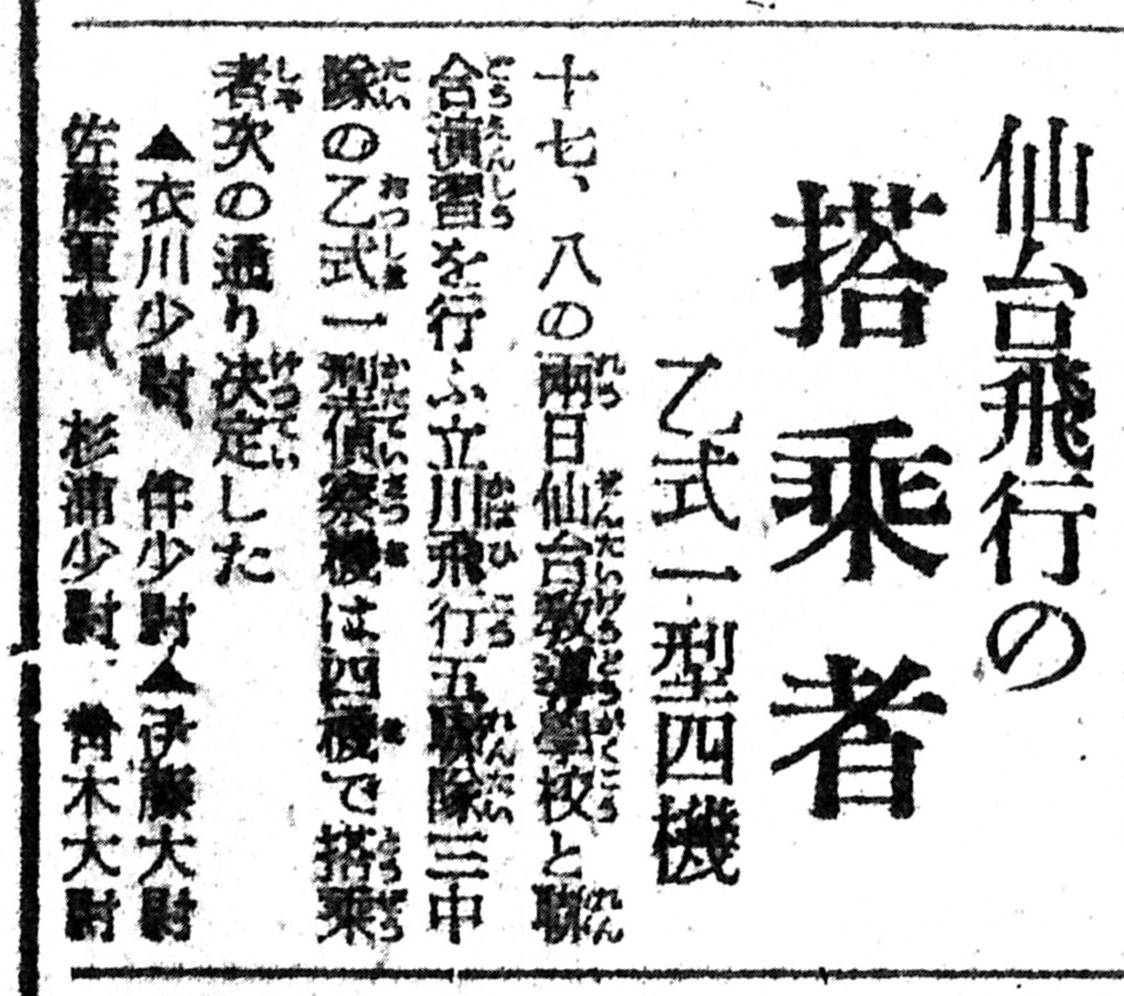 仙台飛行の
搭乘者
乙式一型四機
十七、八の兩日仙台教導學校と聯
合演習を行ふ立川飛行五聯隊三中
隊の乙式一型偵察機は四機で搭乘
者次の通り決定した
▲衣川少尉、伴少尉▲伊藤大尉
佐藤軍曹、杉浦少尉 青木大尉